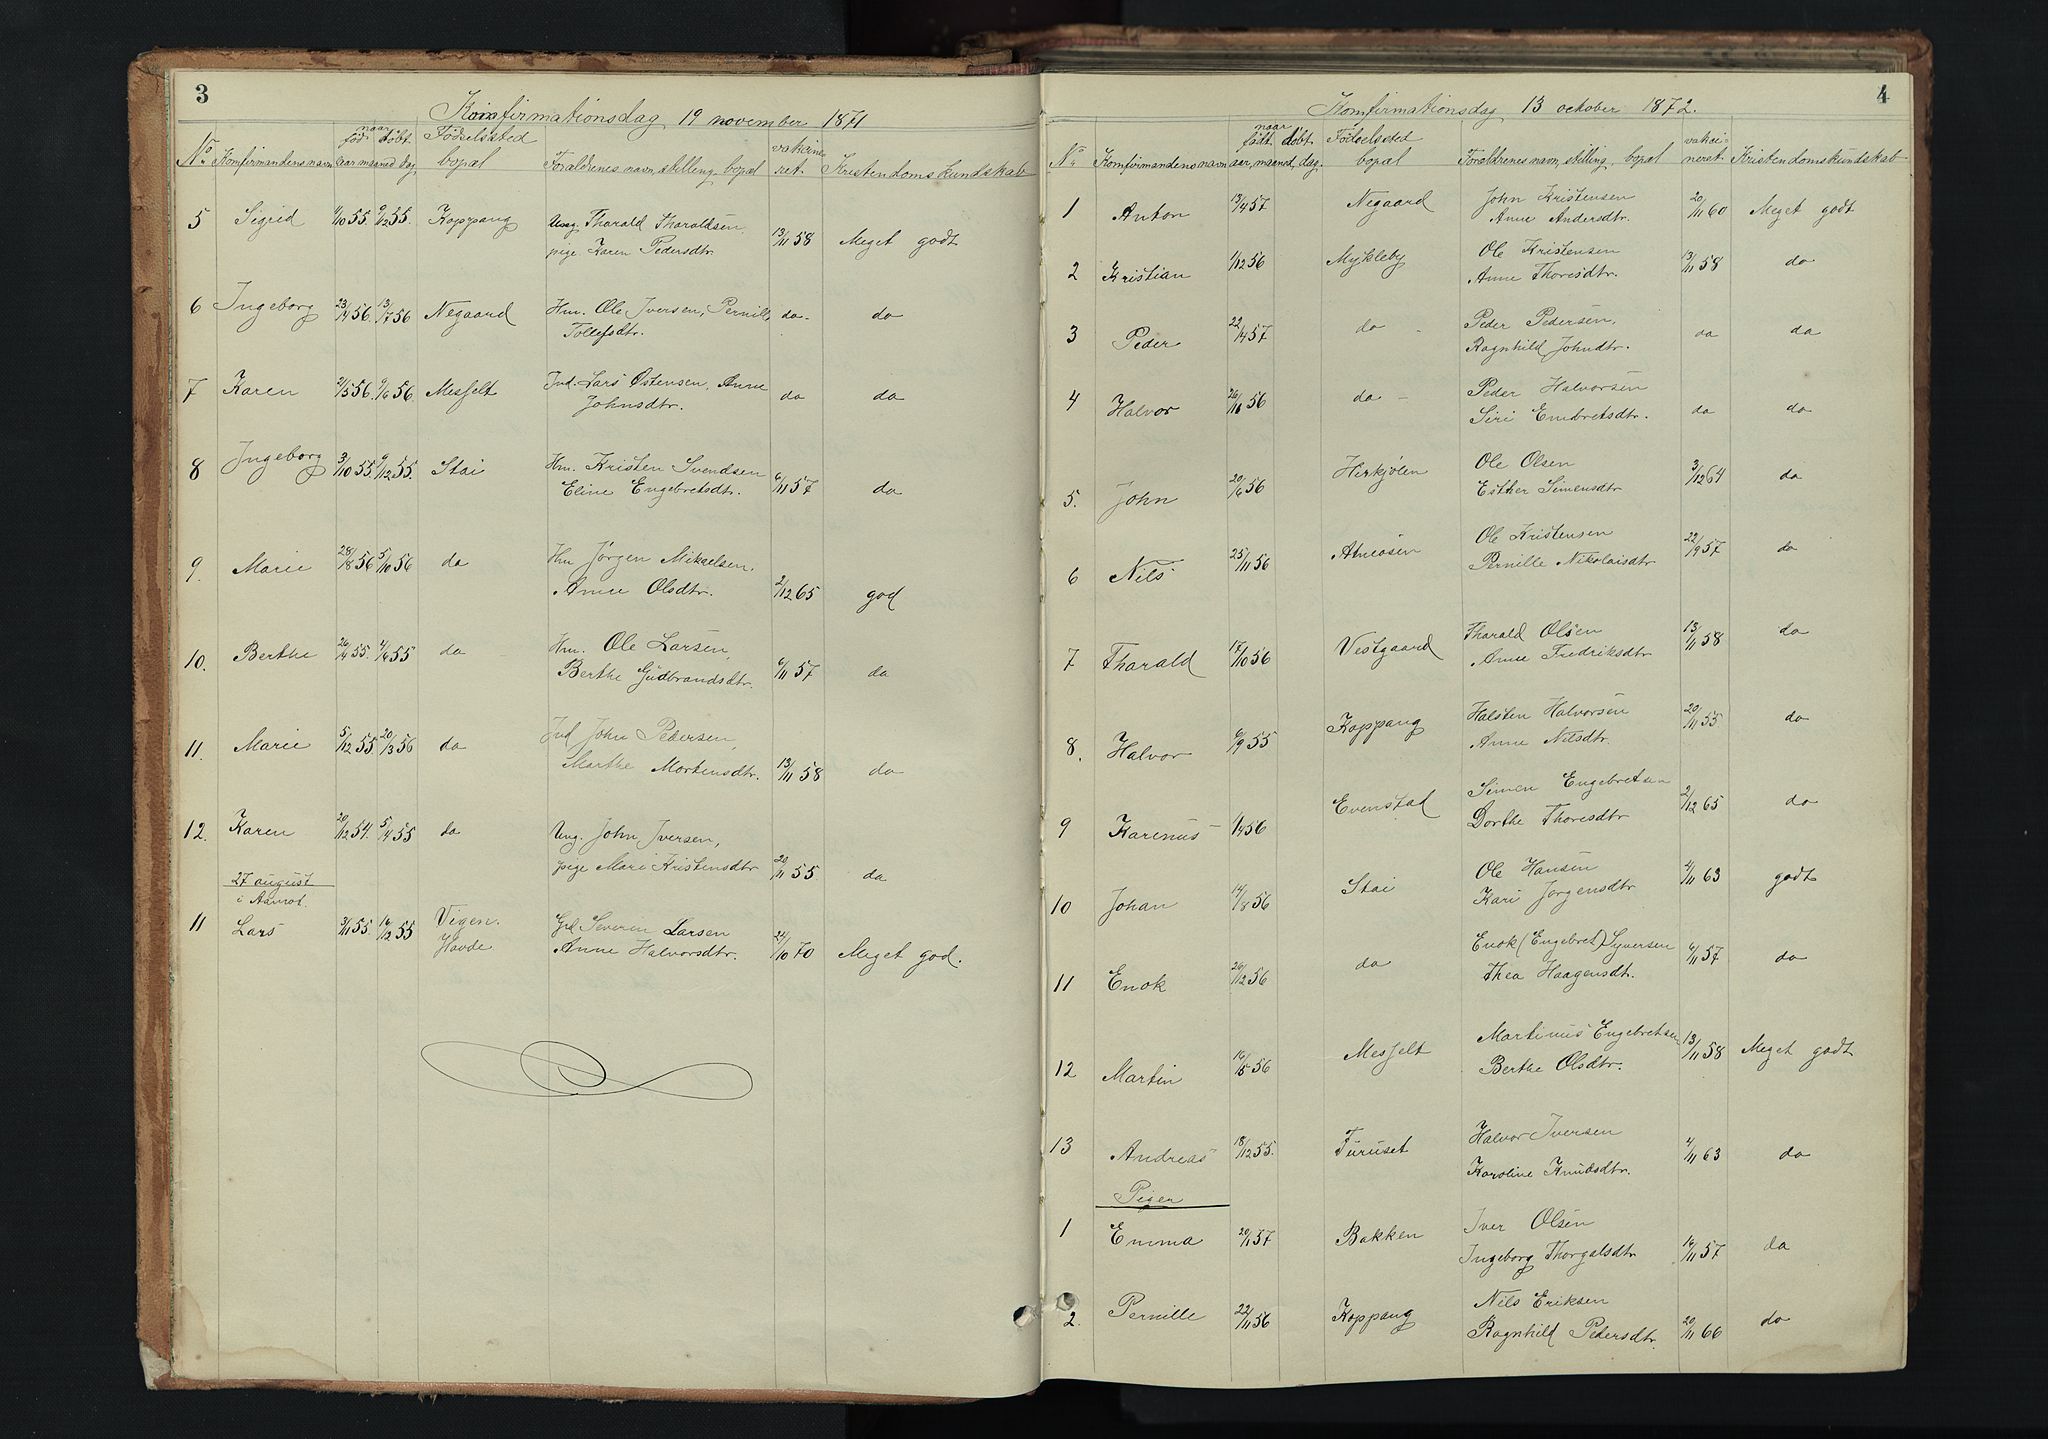 3
Konfirmationsdag 19 november 1871
No. Konfirmandens navn naar født døbt aar maaned dag Fødselssted bopæl Forældrenes navn, stilling, bopæl vakcineret. Kristendomskundskab
5 Sigrid 55. 55. Koppang Ung. Tharald Tharaldsen,
pige Karen Pedersdtr. 13/11 58 Meget godt
6 Ingeborg 23/4 56. 13/7 56 Negaard Hm. Ole Iversen, Pernille do- do
Tollefsdtr.
7 Karen 2/5 56. 9/6 56 Mesfelt Ind. Lars Østensen, Anne do do
Johnsdtr.
8 Ingeborg 3/10 55. 9/12 55. Stai Hm. Kristen Svendsen
Eline Engebretsdtr. 6/11 57 do
9. Marie 28/8 56 5/10 56 do Hm Jørgen Mikaelsen,
Anne Olsdtr. 2/12 65 god
10. Berthe 26/4 55. 4/6 55 do Hm. Ole Larsen,
Berthe Gudbrandsdtr. 6/11 57 do
11. Marie 5/12 55 20/3 56 do Ind John Pedersen,
Marthe Mortensdtr. 13/11 58 do
12. Karen 20/12 54. 5/4 55 do Ung. John Iversen,
pige Mari Kristensdtr 20/11 55. do
27 august
i Aamot.
11 Lars 3/11 55. 16/12 55 Vigen. Grd Severen Larsen
Havde Anne Halvorsdtr. 24/10 70 Meget god.
4
Konfirmationsdag 13 october 1872.
No. Konfirmandens navn naar født døbt. aar, maaned, dag. Fødselssted bopæl Forældrenes navn, stilling, bopæl vakcineret. Kristendomskundskab
1 Anton 13/4 57 Negaard John Kristensen
Anne Andersdtr. 20/11 60 Meget godt
2 Kristian 1/12 56 Mykleby Ole Kristensen
Anne Thoresdtr. 13/11 58 do
3 Peder 22/4 57 do - Peder Pedersen,
Ragnhild Johndtr. do do
4 Halvor 56 do - Peder Halvorsen
Siri Embretsdtr. do do
5. John 20/6 56 Hirkjølen Ole Olsen
Esther Simensdtr 3/12 64 do
6 Nils 25/11 56 Atneosen Ole Kristensen
Pernille Nikolaisdtr 22/9 57 do
7 Tharald 17/10 56 Vestgaard Tharald Olsen
Anne Fredriksdtr 13/11 58 do
8. Halvor 6/9 55 Koppang Halsten Halvorsen
Anne Nilsdtr. 20/11 55 do
9 Karenus 1/4 56 Evenstad Simen Engebretsen
Dorthe Thoresdtr 2/12 65 do
10 Johan 14/8 56 Stai Ole Hansen
Kari Jørgensdtr 4/11 63 godt
11 Enok 26/12 56 do Enok (Engebret) Syversen
Thea Haagensdtr. 6/11 57 do
12 Martin 56 Mesfelt Martinus Engebretsen
Berthe Olsdtr. 13/11 58 Meget godt
13 Andreas 18/12 55. Furuset Halvor Iversen
Karoline Knudsdtr. 4/11 63 do
Piger
1 Emma 20/1 57 Bakken Iver Olsen
Ingeborg Thorgalsdtr 16/11 57 do
2. Pernille 22/11 56 Koppang Nils Eriksen
Ragnhild Pedersdtr. 20/11 66 do